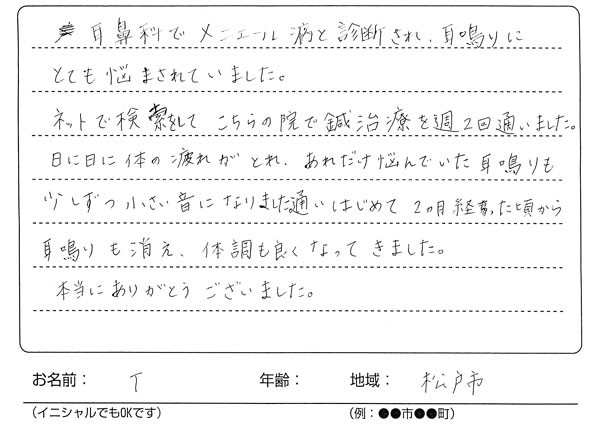 耳鼻科でメニエール病と診断され、耳鳴りに
とても悩まされていました。
ネットで検索をしてこちらの院で鍼治療を週2回通いました。
日に日に体の疲れがとれ、あれだけ悩んでいた耳鳴りも
少しずつ小さい音になりました通いはじめて2カ月経った頃から
耳鳴りも消え、体調も良くなってきました。
本当にありがとうございました。
お名前： T 年齢： 地域： 松戸市
（イニシャルでもOKです） （例：●●市●●町）